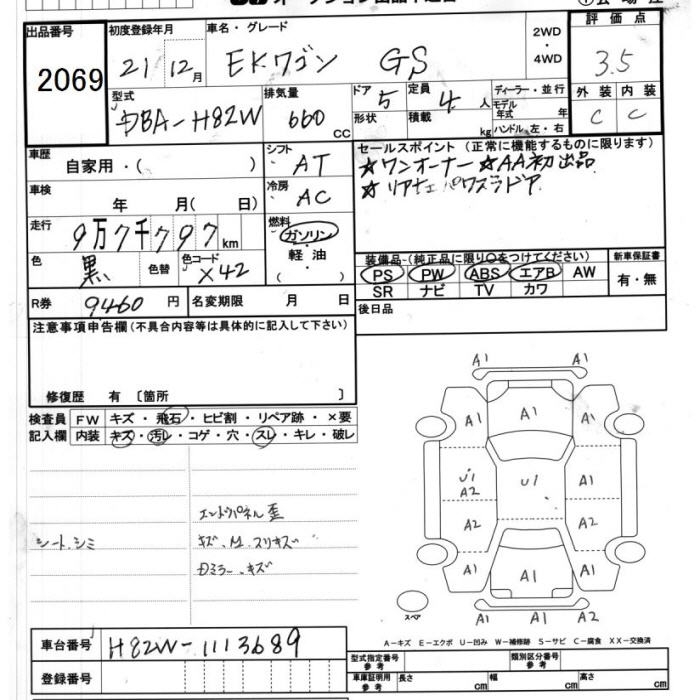 出品番号
2069
初度登録年月
21 12月
車名・グレード
EKワゴン GS
2WD
・
4WD
評価点
3.5
外装 内装
C C
型式
DBA-H82W
排気量
660
CC
ドア
5
形状
定員
4人
積載
kg
ディーラー・並行
モデル年式 年
ハンドル 左・右
車歴
自家用・( )
シフト
AT
セールスポイント (正常に機能するものに限ります)
☆ワンオーナー ☆AA初出品
☆リアチェ パワスラドア
車検
年 月( 日)
冷房
AC
走行
9万7千797km
燃料
ガソリン
・
軽油
・
( )
色
黒
色替
色コード
X42
装備品-(純正品に限り○をつけてください)
PS PW ABS エアB AW
SR ナビ TV カワ
新車保証書
有・無
R券 9460円
名変期限 月 日
後日品
注意事項申告欄(不具合内容等は具体的に記入して下さい)
修復歴 有 〔箇所 〕
検査員
記入欄
FW キズ・飛石・ヒビ割・リペア跡・×要
内装 キズ・汚レ・コゲ・穴・スレ・キレ・破レ
エンドパネル歪
シート、シミ
キズ、M、スリキズ
Dミラー、キズ
A1 A1
A1 A1 A1
U1
A2
U1
A1
A2 A2
A1 A1 A1
A1 A1 A2
スペア
A-キズ E-エクボ U-凹み W-補修跡 S-サビ C-腐食 XX-交換済
車台番号
H82W-1113689
登録番号
型式指定番号
参考
類別区分番号
参考
車庫証明用
参考
長さ cm 幅 cm 高さ cm